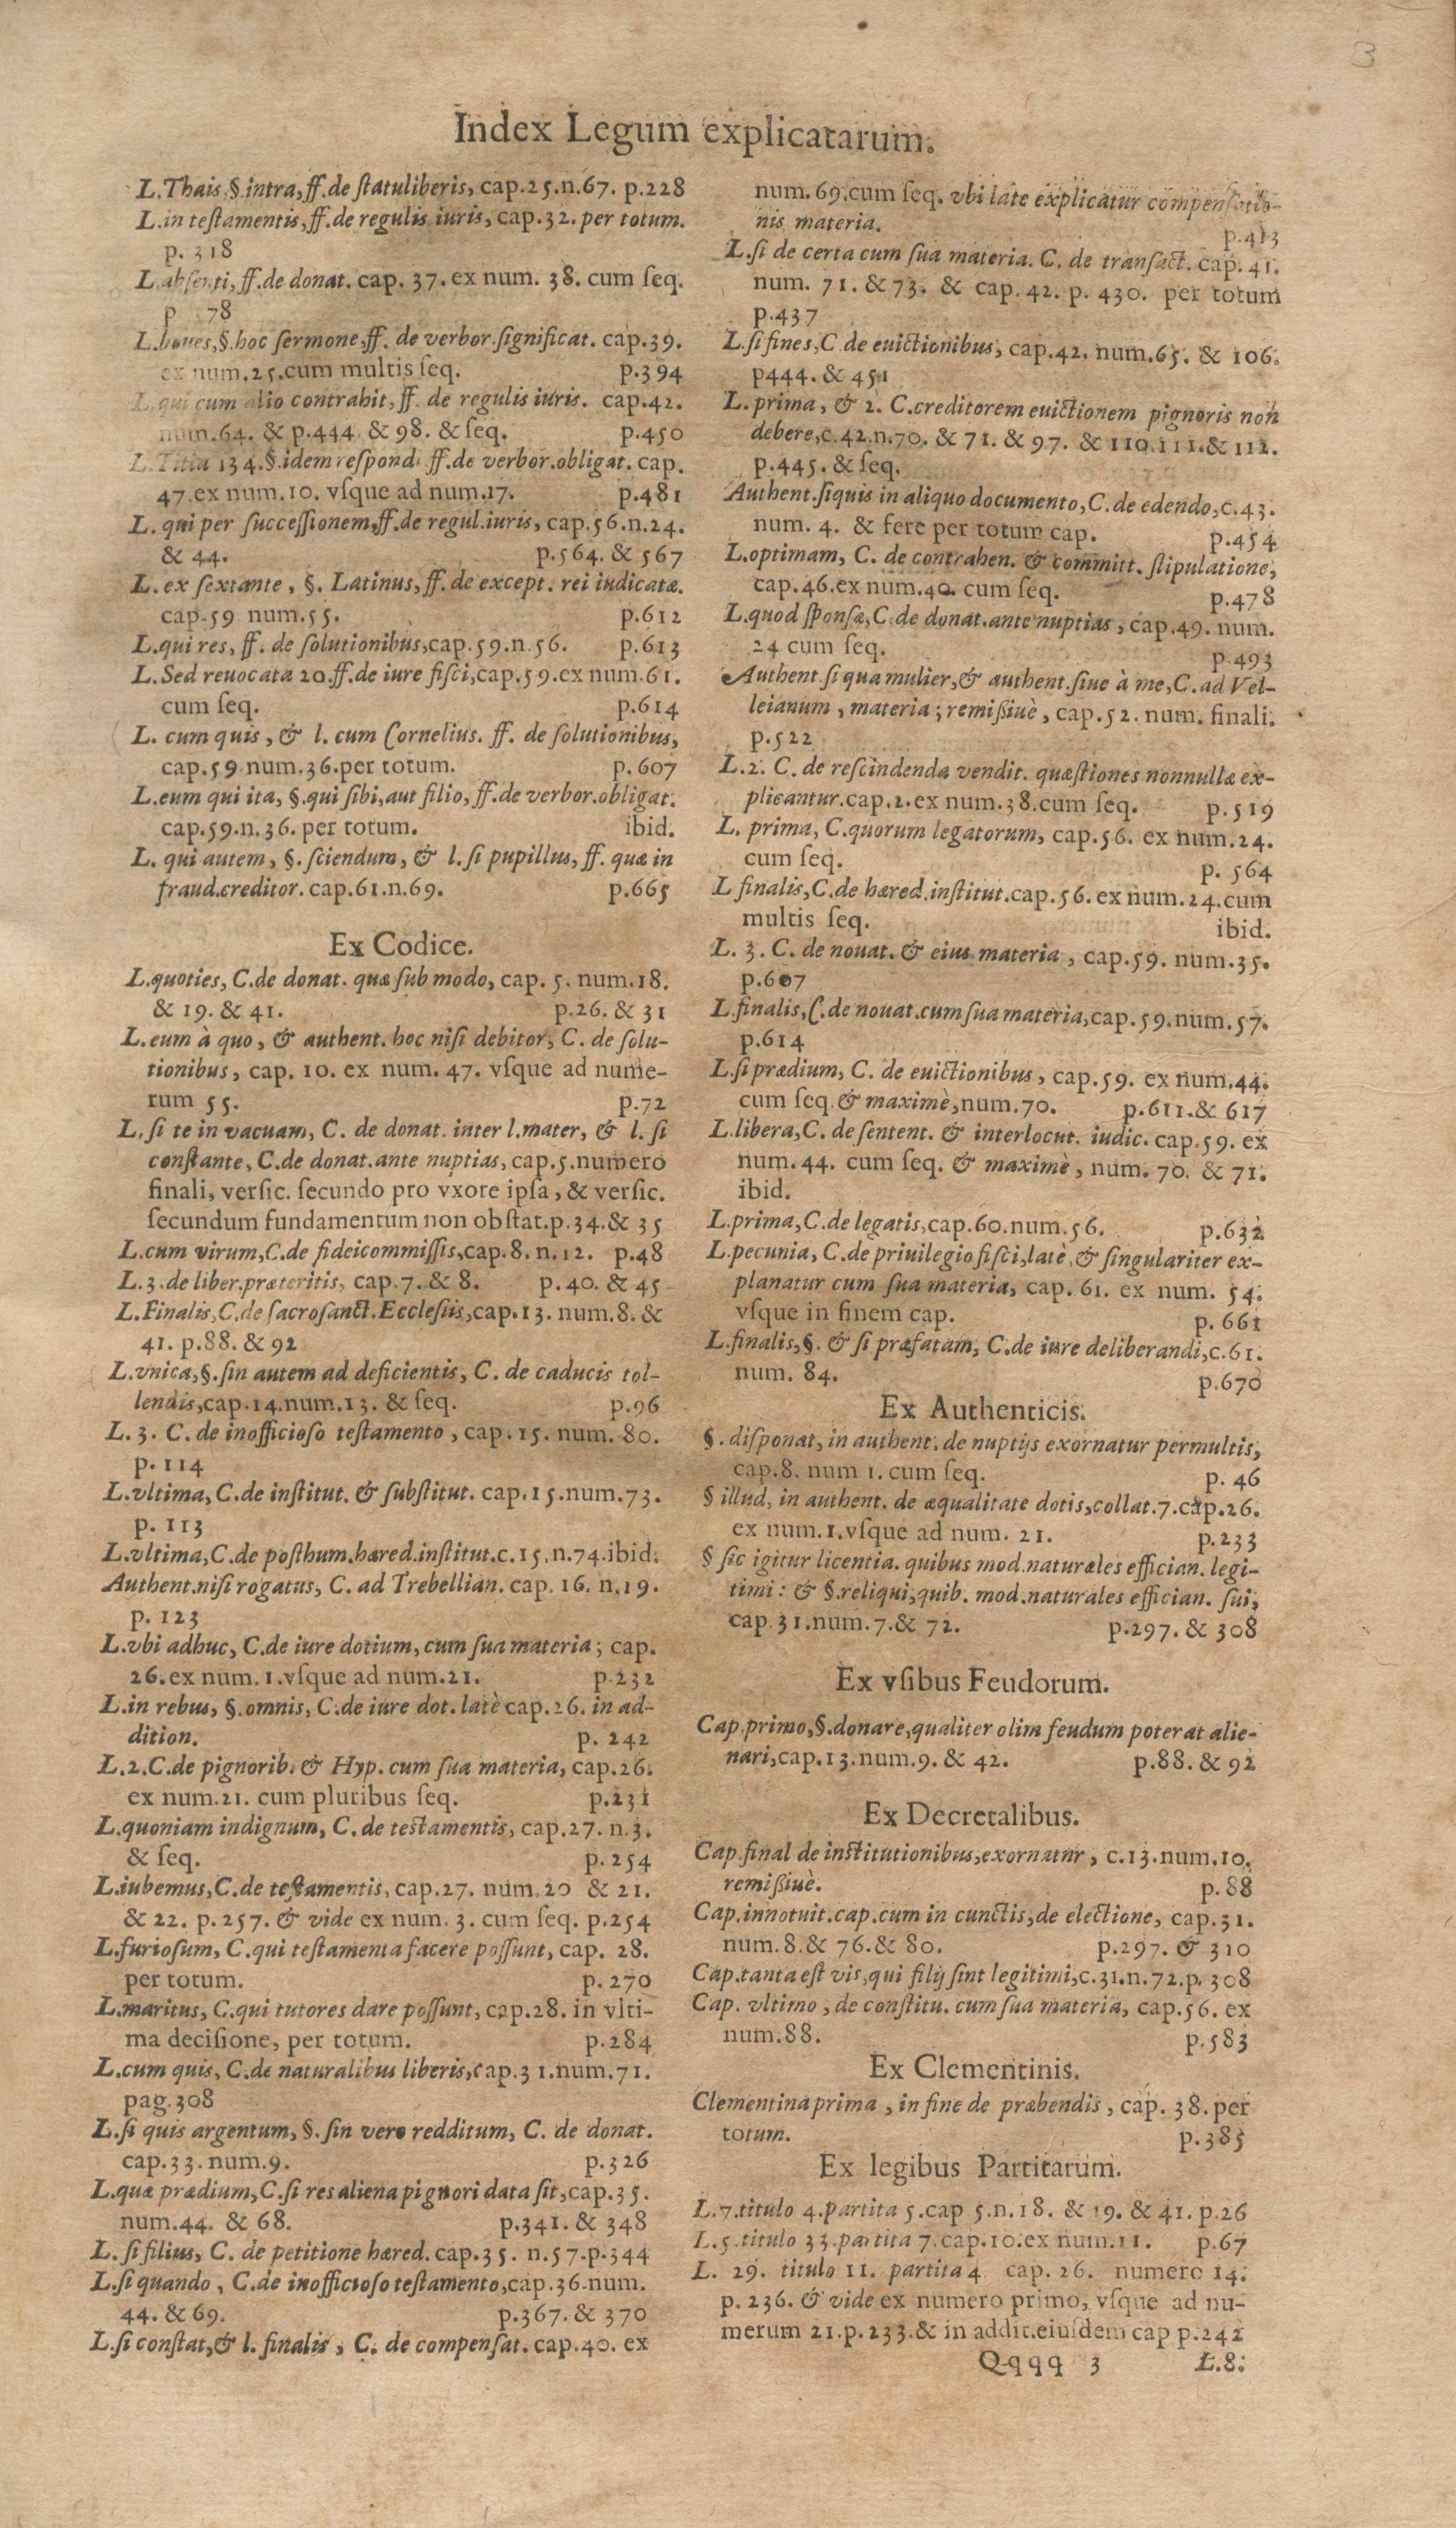 3
Index Legum explicatarum.
L.Thais,§.intra,ff.de ſtatuliberis, cap.25.n.67. p.228
L.in teſtamentis,ff.de regulis iuris, cap.32. per totum.
p. 318
L.abſenti, ff.de donat. cap. 37. ex num. 38. cum ſeq.
p 78
L.boues,§.hoc ſermone,ff. de verbor.ſignificat. cap.39.
ex num.25.cum multis ſeq. p.394
L.qui cum alio contrahit, ff. de regulis iuris. cap.42.
num.64. & p.444 & 98. & ſeq. p.450
L.Titia 134.§.idem reſpond. ff.de verbor.obligat. cap.
47.ex num.10. vſque ad num.17. p.481
L. qui per ſucceſſionem,ff.de regul.iuris, cap.56.n.24.
& 44. p.564. & 567
L. ex ſextante, §. Latinus, ff. de except. rei iudicatæ.
cap.59 num.55. p.612
L.qui res, ff. de ſolutionibus,cap.59.n.56. p.613
L.Sed reuocata 20.ff.de iure fiſci,cap.59.ex num.61.
cum ſeq. p.614
L. cum quis, & l. cum Cornelius. ff. de ſolutionibus,
cap.59 num.36.per totum. p.607
L.eum qui ita, §.qui ſibi,aut filio, ff.de verbor.obligat.
cap.59.n.36. per totum. ibid.
L. qui autem, §. ſciendum, & l. ſi pupillus, ff. quæ in
fraud.creditor. cap.61.n.69. p.665
Ex Codice.
L.quoties, C.de donat. quæ ſub modo, cap. 5. num.18.
& 19. & 41. p.26. & 31
L.eum à quo, & authent. hoc niſi debitor, C. de ſolu-
tionibus, cap. 10. ex num. 47. vſque ad nume-
rum 55. p.72
L. ſi te in vacuam, C. de donat. inter l.mater, & l. ſi
conſtante, C.de donat.ante nuptias, cap.5.numero
finali, verſic. ſecundo pro vxore ipſa, & verſic.
ſecundum fundamentum non obſtat.p.34.& 35
L.cum virum,C.de fideicommiſſis,cap.8. n.12. p.48
L.3.de liber.præteritis, cap.7. & 8. p.40. & 45
L.Finalis,C.de ſacroſanct.Eccleſiis,cap.13. num.8. &
41. p.88. & 92
L.vnica,§.ſin autem ad deficientis, C. de caducis tol-
lendis,cap.14.num.13. & ſeq. p.96
L. 3. C. de inofficioſo teſtamento, cap.15. num. 80.
p. 114
L.vltima, C.de inſtitut. & ſubſtitut. cap.15.num.73.
p. 113
L.vltima,C.de poſthum.hæred.inſtitut.c.15.n.74.ibid.
Authent.niſi rogatus, C. ad Trebellian. cap. 16. n.19.
p. 123
L.vbi adhuc, C.de iure dotium, cum ſua materia; cap.
26.ex num.1.vſque ad num.21. p.232
L.in rebus, §.omnis, C.de iure dot. latè cap.26. in ad-
dition. p. 242
L.2.C.de pignorib. & Hyp. cum ſua materia, cap.26.
ex num.21. cum pluribus ſeq. p.231
L.quoniam indignum, C. de teſtamentis, cap.27. n.3.
& ſeq. p.254
L.iubemus,C.de teſtamentis, cap.27. num.20 & 21.
& 22. p.257. & vide ex num. 3. cum ſeq. p.254
L.furioſum, C.qui teſtamenta facere poſſunt, cap. 28.
per totum. p.270
L.maritus, C.qui tutores dare poſſunt, cap.28. in vlti-
ma deciſione, per totum. p.284
L.cum quis, C.de naturalibus liberis,cap.31.num.71.
pag.308
L.ſi quis argentum, §. ſin vero redditum, C. de donat.
cap.33. num.9. p.326
L.quæ prædium,C.ſi res aliena pignori data ſit,cap.35.
num.44. & 68. p.341. & 348
L. ſi filius, C. de petitione hæred. cap.35. n.57.p.344
L.ſi quando, C.de inofficioſo teſtamento,cap.36.num.
44. & 69. p.367. & 370
L.ſi conſtat,& l. finalis, C. de compenſat. cap.40. ex
num. 69.cum ſeq. vbi late explicatur compenſatio-
nis materia. p.413
L.ſi de certa cum ſua materia. C. de tranſact. cap.41.
num. 71. & 73. & cap. 42. p. 430. per totum
p.437
L.ſi fines,C.de euictionibus, cap.42. num.65. & 106.
p444. & 451
L. prima, & 2. C.creditorem euictionem pignoris non
debere,c.42.n.70. & 71. & 97. & 110.111.& 112.
p.445. & ſeq.
Authent.ſiquis in aliquo documento,C.de edendo,c.43.
num. 4. & fere per totum cap. p.454
L.optimam, C. de contrahen. & committ. ſtipulatione,
cap.46.ex num.40. cum ſeq. p.478
L.quod ſponſæ,C.de donat.ante nuptias, cap.49. num.
24 cum ſeq. p.493
Authent.ſi qua mulier,& authent.ſiue à me,C.ad Vel-
leianum, materia; remiſſiuè, cap.52. num. finali.
p.522
L.2. C. de reſcindenda vendit. quæſtiones nonnullæ ex-
plicantur.cap.2.ex num.38.cum ſeq. p.519
L. prima, C.quorum legatorum, cap.56. ex num.24.
cum ſeq. p. 564
L finalis,C.de hæred.inſtitut.cap.56.ex num.24.cum
multis ſeq. ibid.
L. 3. C. de nouat. & eius materia, cap.59. num.35.
p.607
L.finalis,C.de nouat.cum ſua materia,cap.59.num.57.
p.614
L.ſi prædium, C. de euictionibus, cap.59. ex num.44.
cum ſeq. & maximè,num.70. p.611.& 617
L.libera,C. de ſentent. & interlocut. iudic. cap.59. ex
num. 44. cum ſeq. & maximè, num. 70. & 71.
ibid.
L.prima,C.de legatis,cap.60.num.56. p.632
L.pecunia, C.de priuilegio fiſci,latè,& ſingulariter ex-
planatur cum ſua materia, cap. 61. ex num. 54.
vſque in finem cap. p. 661
L.finalis,§. & ſi præfatam, C.de iure deliberandi,c.61.
num. 84. p.670
Ex Authenticis.
§. diſponat, in authent. de nuptijs exornatur permultis,
cap.8. num 1. cum ſeq. p. 46
§ illud, in authent. de æqualitate dotis,collat.7.cap.26.
ex num.1.vſque ad num. 21. p.233
§ ſic igitur licentia. quibus mod.naturales effician. legi-
timi: & §.reliqui,quib. mod.naturales effician. ſui,
cap.31.num.7.& 72. p.297. & 308
Ex vſibus Feudorum.
Cap.primo,§.donare,qualiter olim feudum poterat alie-
nari,cap.13.num.9. & 42. p.88. & 92
Ex Decretalibus.
Cap.final de inſtitutionibus,exornatur, c.13.num.10.
remiſſiuè. p.88
Cap.innotuit.cap.cum in cunctis,de electione, cap.31.
num.8.& 76.& 80. p.297. & 310
Cap.tanta eſt vis,qui filij ſint legitimi,c.31.n.72.p. 308
Cap. vltimo, de conſtitu. cum ſua materia, cap.56. ex
num.88. p.583
Ex Clementinis.
Clementina prima, in fine de præbendis, cap. 38. per
totum. p.385
Ex legibus Partitarum.
L.7.titulo 4.partita 5.cap 5.n.18. & 19. & 41. p.26
L.5.titulo 33.partita 7.cap.10.ex num.11. p.67
L. 29. titulo 11. partita 4 cap. 26. numero 14.
p. 236. & vide ex numero primo, vſque ad nu-
merum 21.p.233.& in addit.eiuſdem cap p.242
Qqqq 3 L.8.